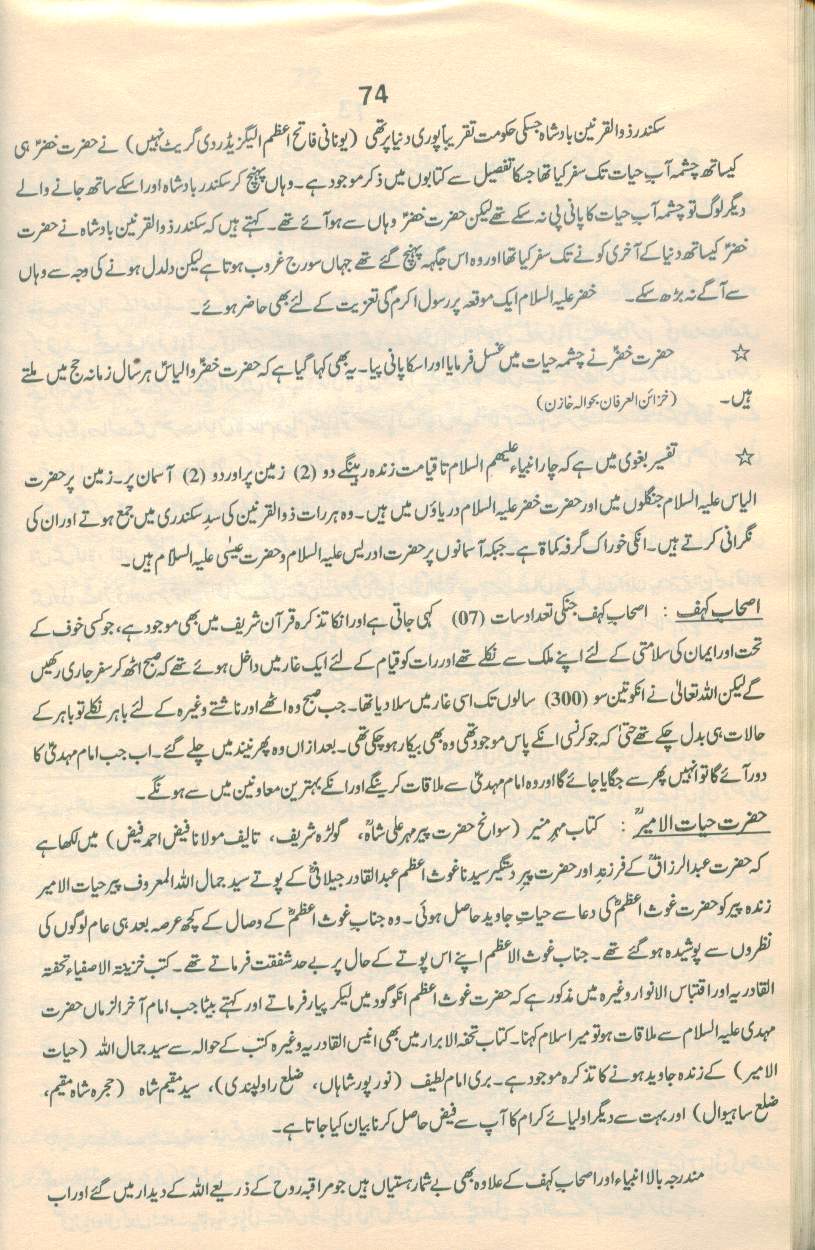 74
سکندر ذوالقرنین بادشاہ جسکی حکومت تقریباً پوری دنیا پر تھی (یونانی فاتح اعظم الیگزیڈر دی گریٹ نہیں) نے حضرت خضرؑ ہی
کیساتھ چشمہ آبِ حیات تک سفر کیا تھا جسکا تفصیل سے کتابوں میں ذکر موجود ہے۔ وہاں پہنچ کر سکندر بادشاہ اور اسکے ساتھ جانے والے
دیگر لوگ تو چشمہ آبِ حیات کا پانی پی نہ سکے تھے لیکن حضرت خضرؑ وہاں سے ہو آئے تھے۔ کہتے ہیں کہ سکندر ذوالقرنین بادشاہ نے حضرت
خضرؑ کیساتھ دنیا کے آخری کونے تک سفر کیا تھا اور وہ اس جگہہ پہنچ گئے تھے جہاں سورج غروب ہوتا ہے لیکن دلدل ہونے کی وجہ سے وہاں
سے آگے نہ بڑھ سکے۔ خضر علیہ السلام ایک موقعہ پر رسول اکرمؐ کی تعزیت کے لئے بھی حاضر ہوئے۔
☆ حضرت خضرؑ نے چشمہ حیات میں غسل فرمایا اور اسکا پانی پیا۔ یہ بھی کہا گیا ہے کہ حضرت خضرؑ و الیاسؑ ہر سال زمانہ حج میں ملتے
ہیں۔ (خزائن العرفان بحوالہ خازن)
☆ تفسیر بغوی میں ہے کہ چار انبیاء علیہم السلام تا قیامت زندہ رہینگے دو (2) زمین پر اور دو (2) آسمان پر۔ زمین پر حضرت
الیاس علیہ السلام جنگلوں میں اور حضرت خضر علیہ السلام دریاؤں میں ہیں۔ وہ ہر رات ذوالقرنین کی سدِ سکندری میں جمع ہوتے اور ان کی
نگرانی کرتے ہیں۔ انکی خوراک گرفہ کماۃ ہے۔ جبکہ آسمانوں پر حضرت ادریس علیہ السلام و حضرت عیسٰی علیہ السلام ہیں۔
اصحابِ کہف : اصحابِ کہف جنکی تعداد سات (07) کہی جاتی ہے اور انکا تذکرہ قرآن شریف میں بھی موجود ہے، جو کسی خوف کے
تحت اور ایمان کی سلامتی کے لئے اپنے ملک سے نکلے تھے اور رات کو قیام کے لئے ایک غار میں داخل ہوئے تھے کہ صبح اٹھ کر سفر جاری رکھیں
گے لیکن اللہ تعالیٰ نے انکو تین سو (300) سالوں تک اسی غار میں سلا دیا تھا۔ جب صبح وہ اٹھے اور ناشتے وغیرہ کے لئے باہر نکلے تو باہر کے
حالات ہی بدل چکے تھے حتیٰ کہ جو کرنسی انکے پاس موجود تھی وہ بھی بیکار ہو چکی تھی۔ بعد ازاں وہ پھر نیند میں چلے گئے۔ اب جب امام مہدیؑ کا
دور آئے گا تو انہیں پھر سے جگایا جائے گا اور وہ امام مہدیؑ سے ملاقات کرینگے اور انکے بہترین معاونین میں سے ہونگے۔
حضرت حیات الامیرؒ : کتاب مہرِ منیر (سوانح حضرت پیر مہر علی شاہؒ، گولڑہ شریف، تالیف مولانا فیض احمد فیض) میں لکھا ہے
کہ حضرت عبدالرزاقؒ کے فرزند اور حضرت پیرِ دستگیر سیدنا غوث اعظم عبدالقادر جیلانیؒ کے پوتے سید جمال اللہ المعروف پیر حیات الامیر
زندہ پیر کو حضرت غوث اعظمؒ کی دعا سے حیاتِ جاوید حاصل ہوئی۔ وہ جناب غوث اعظمؒ کے وصال کے کچھ عرصہ بعد ہی عام لوگوں کی
نظروں سے پوشیدہ ہو گئے تھے۔ جناب غوث الاعظم اپنے اس پوتے کے حال پر بے حد شفقت فرماتے تھے۔ کتب خزینتہ الاصفیاء تحفتہ
القادریہ اور اقتباس الانوار وغیرہ میں مذکور ہے کہ حضرت غوث اعظم انکو گود میں لیکر پیار فرماتے اور کہتے بیٹا جب امام آخر الزماں حضرت
مہدی علیہ السلام سے ملاقات ہو تو میرا سلام کہنا۔ کتاب تحفہ الابرار میں بھی انیس القادریہ وغیرہ کتب کے حوالہ سے سید جمال اللہ (حیات
الامیر) کے زندہ جاوید ہونے کا تذکرہ موجود ہے۔ بری امام لطیف (نور پور شاہاں، ضلع راولپنڈی)، سید مقیم شاہ (حجرہ شاہ مقیم،
ضلع ساہیوال) اور بہت سے دیگر اولیائے کرام کا آپ سے فیض حاصل کرنا بیان کیا جاتا ہے۔
مندرجہ بالا انبیاء اور اصحاب کہف کے علاوہ بھی بے شمار ہستیاں ہیں جو مراقبہ روح کے ذریعے اللہ کے دیدار میں گئے اور اب